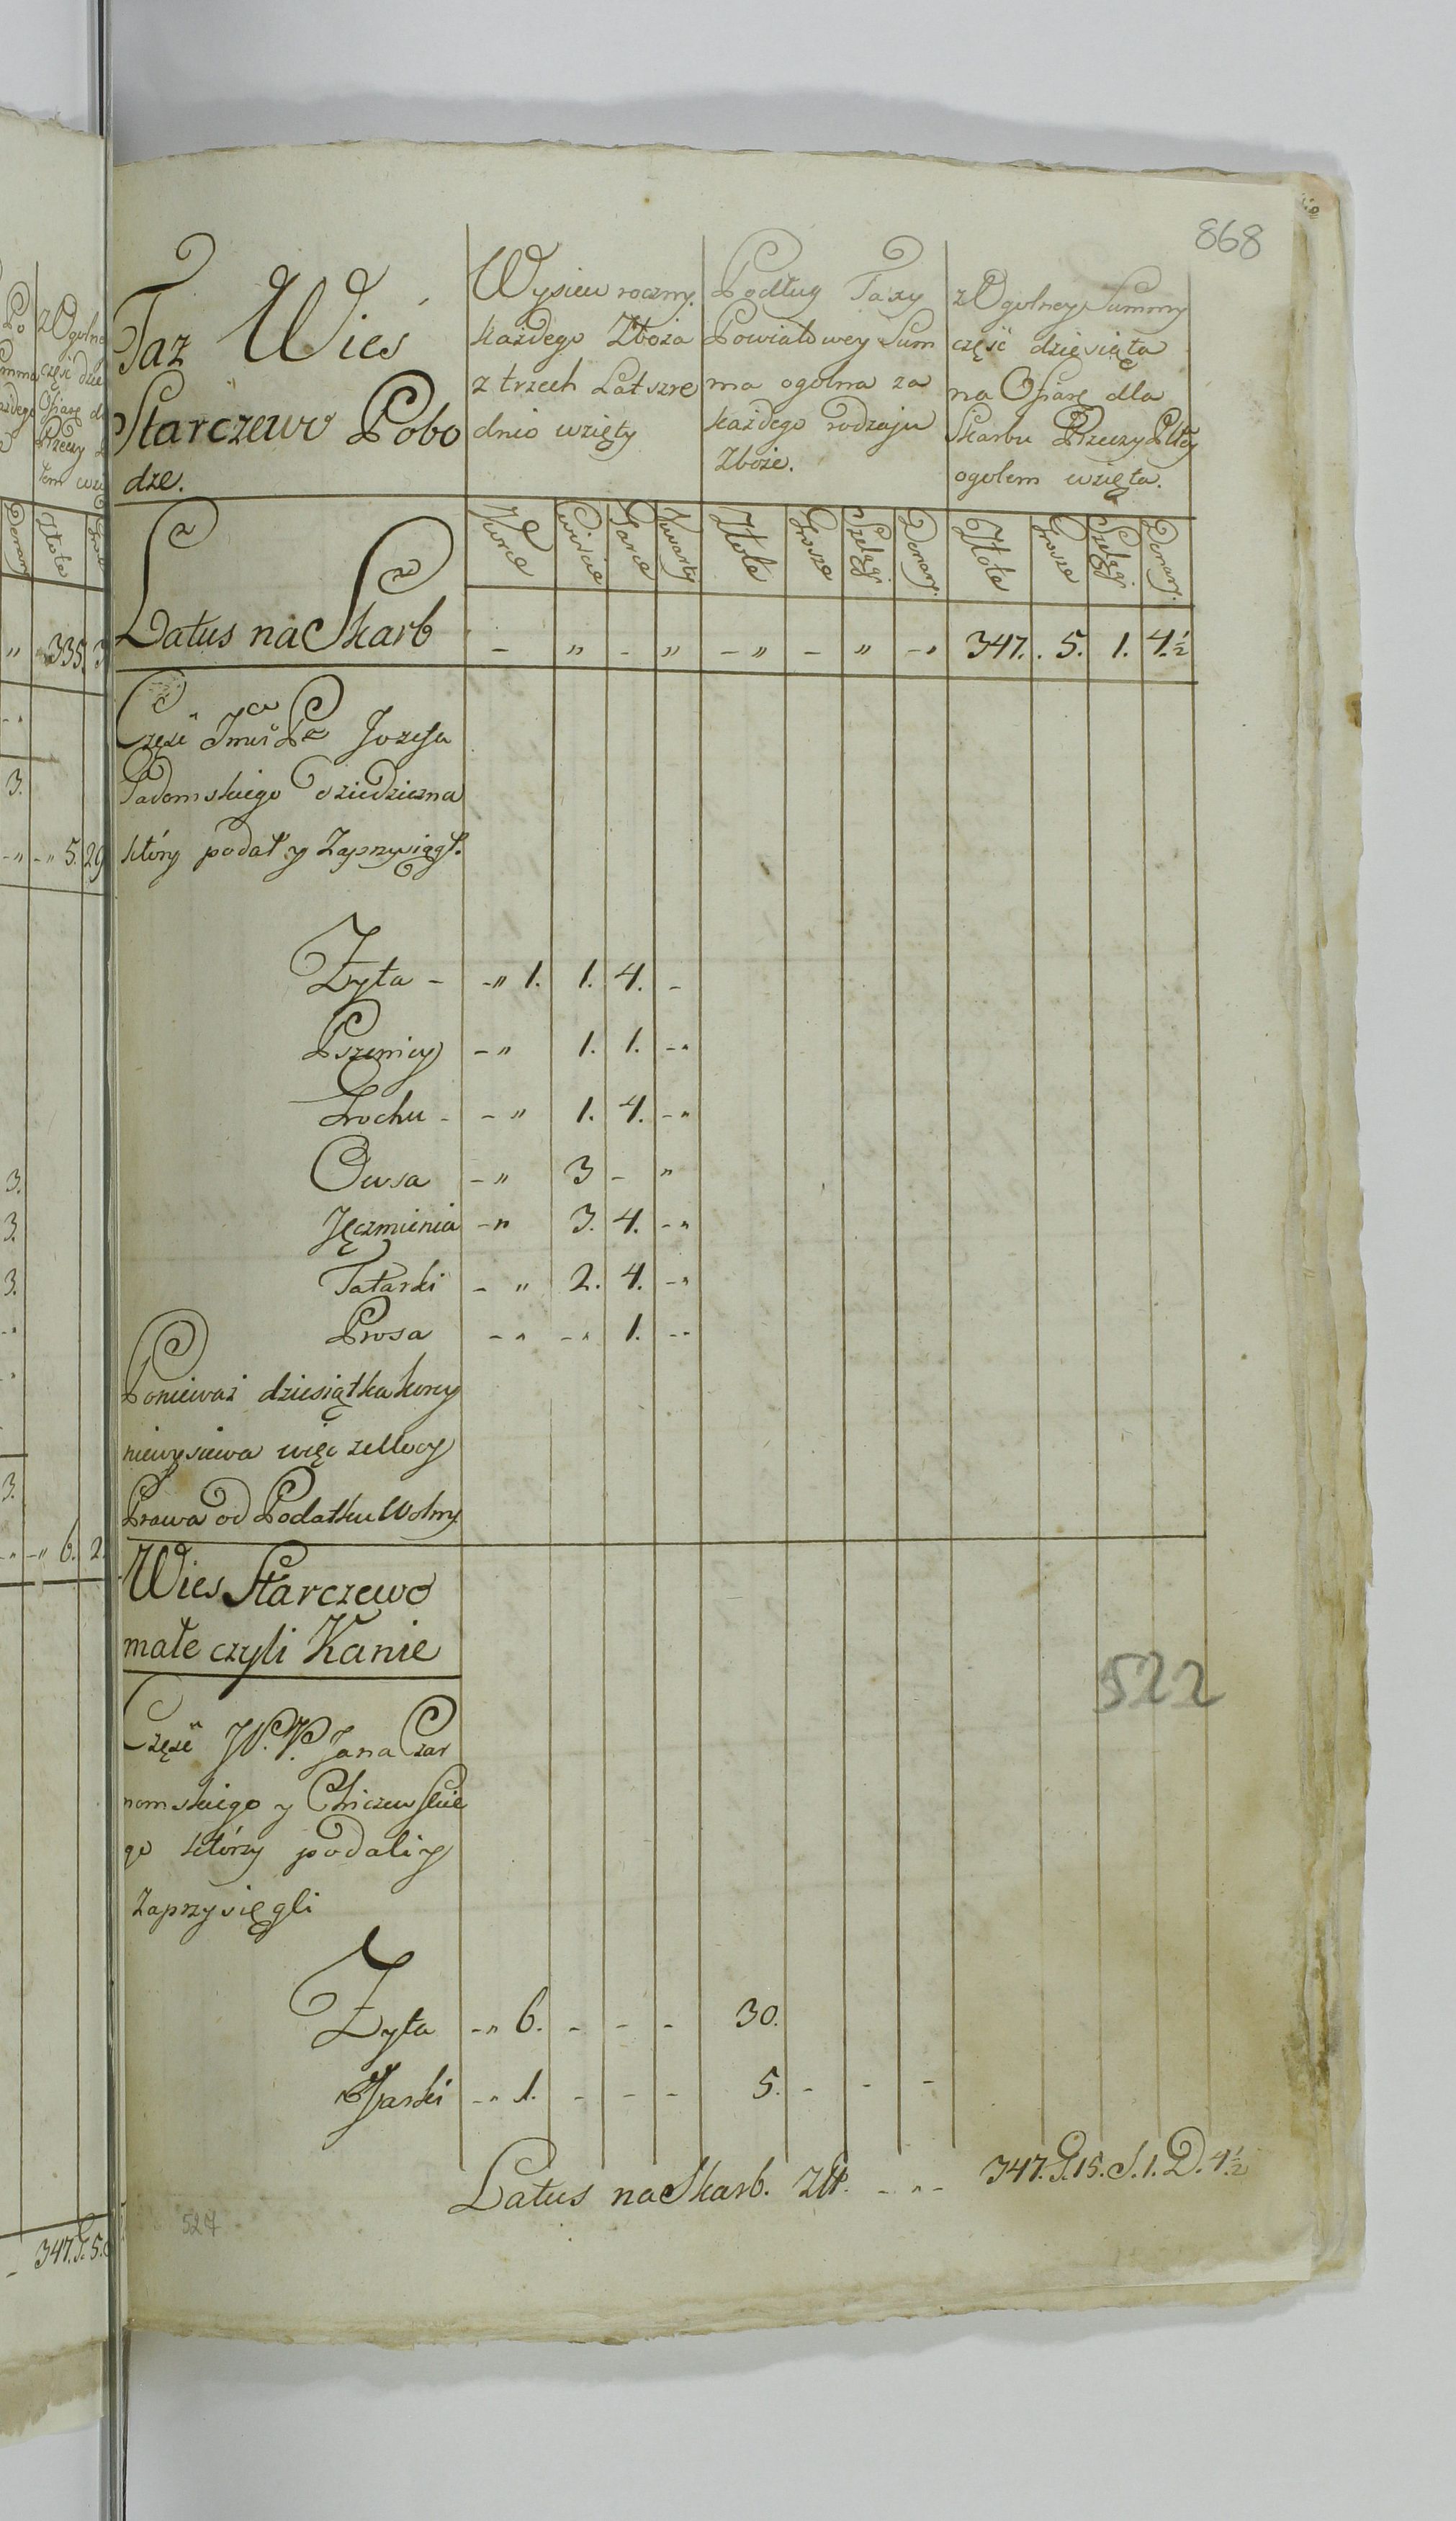 868
Taz Wieś
Starczewo Pobo
dze.
Wysiew roczny.
każdego Zboża
z trzech Lat szre
dnio wzięty
Podług Taxy
Powiatowey Sum
ma ogolna za
każdego rodzaju
Zboże.
z Ogolney Summy
część dziesięta
na Ofiarę dla
Skarbu Rzeczy Pltey
ogolem wzięta.
Korce Cwircie Garce Kwarty Złote Grosze Szelągi Denary. Złote Grosze Szelągi Denary.
Latus na Skarb - " - " - " - " - " 347. 5. 1. 4.½
Część Jmci Pa Jozefa
Radomskiego dziedziczna
który podał y Zaprzysiągł.
Zyta - - " 1. 1. 4. -
Pszenicy - " 1. 1. - "
Grochu - - " 1. 4. - "
Owsa - " 3 - "
Jęczmienia - " 3. 4. - "
Tatarki - " 2. 4. - "
Prosa - " - " 1. - "
Ponieważ dziesiątka korcy
niewysiewa więc z Mocy
Prawa od Podatku Wolny
Wies Starczewo
małe czyli Kanie
522
Część W. W. Jana Czar
nomskiego y Chiczewskie
go którzy podali y
Zaprzysięgli
Zyta - " 6. - - - 30.
Jarki - " 1. - - - 5. - - -
Latus na Skarb. Złt. - " - 347. G. 15. S. 1. D. 4.½
527